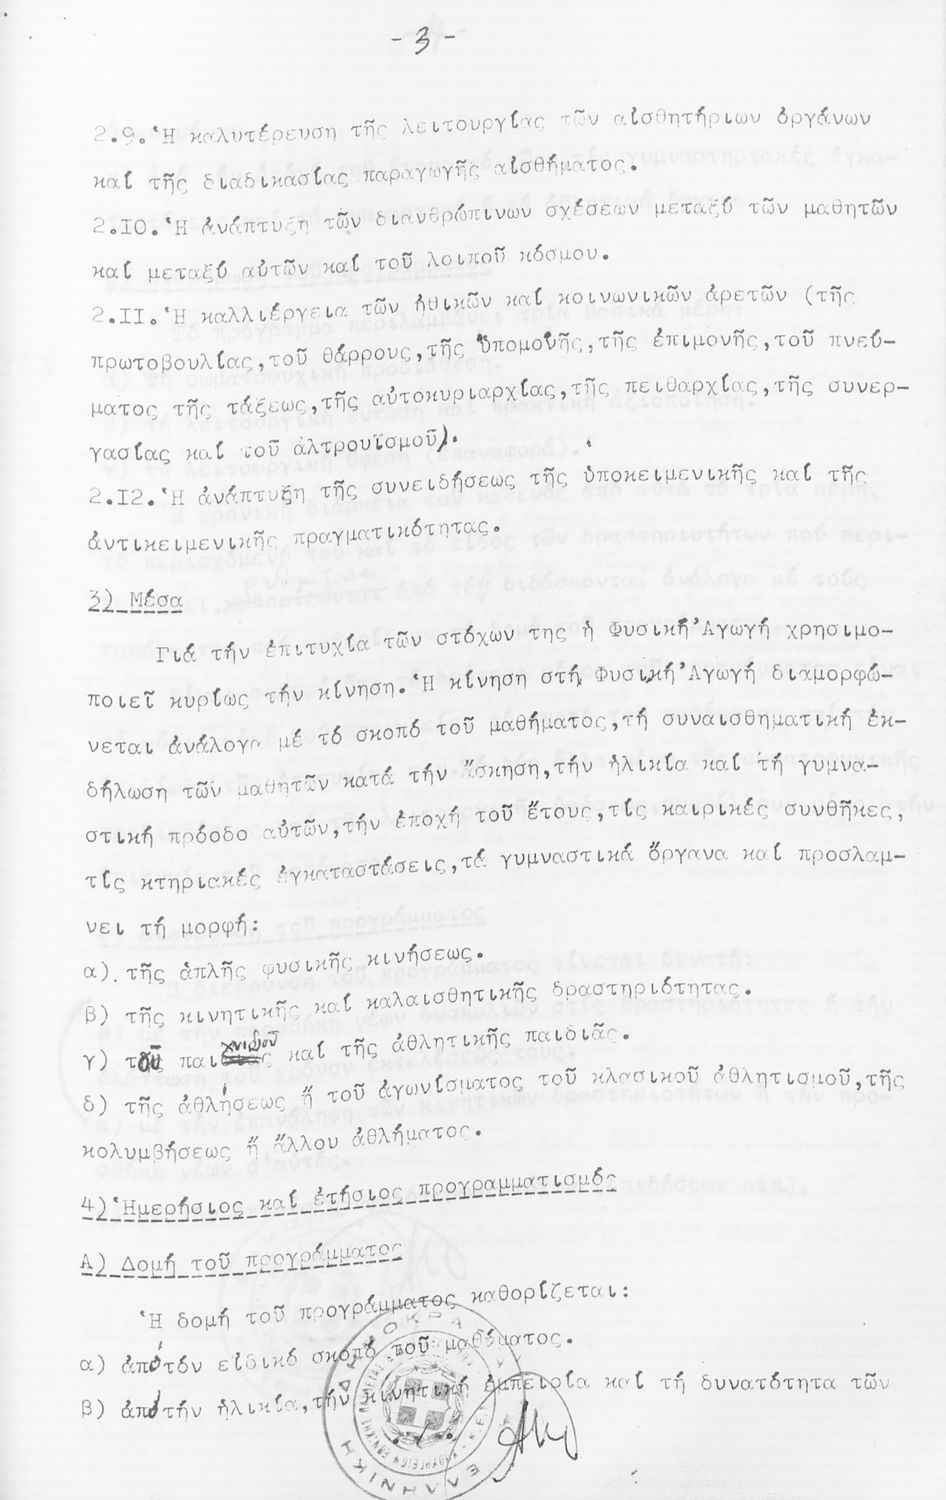 - 3 -
2.9. Ἡ καλυτέρευση τῆς λειτουργίας τῶν αἰσθητήριων ὀργάνων
καί τῆς διαδικασίας παραγωγῆς αἰσθήματος.
2.I0. Ἡ ἀνάπτυξη τῶν διανθρώπινων σχέσεων μεταξύ τῶν μαθητῶν
καί μεταξύ αὐτῶν καί τοῦ λοιποῦ κόσμου.
2.II. Ἡ καλλιέργεια τῶν ἠθικῶν καί κοινωνικῶν ἀρετῶν (τῆς
πρωτοβουλίας,τοῦ θάρρους,τῆς ὑπομονῆς,τῆς ἐπιμονῆς,τοῦ πνεύ-
ματος τῆς τάξεως,τῆς αὐτοκυριαρχίας,τῆς πειθαρχίας,τῆς συνερ-
γασίας καί τοῦ ἀλτρουϊσμοῦ).
2.I2. Ἡ ἀνάπτυξη τῆς συνειδήσεως τῆς ὑποκειμενικῆς καί τῆς
ἀντικειμενικῆς πραγματικότητας.
3) Μέσα
Γιά τήν ἐπιτυχία τῶν στόχων της ἡ Φυσική Ἀγωγή χρησιμο-
ποιεῖ κυρίως τήν κίνηση. Ἡ κίνηση στή Φυσική Ἀγωγή διαμορφώ-
νεται ἀνάλογα μέ τό σκοπό τοῦ μαθήματος,τή συναισθηματική ἐκ-
δήλωση τῶν μαθητῶν κατά τήν ἄσκηση,τήν ἡλικία καί τή γυμνα-
στική πρόοδο αὐτῶν,τήν ἐποχή τοῦ ἔτους,τίς καιρικές συνθῆκες,
τίς κτηριακές ἐγκαταστάσεις,τά γυμναστικά ὄργανα καί προσλαμ-
νει τή μορφή:
α). τῆς ἁπλῆς φυσικῆς κινήσεως.
β) τῆς κινητικῆς καί καλαισθητικῆς δραστηριότητας.
γ) τοῦ παιχνιδιοῦ καί τῆς ἀθλητικῆς παιδιᾶς.
δ) τῆς ἀθλήσεως ἤ τοῦ ἀγωνίσματος τοῦ κλασικοῦ ἀθλητισμοῦ,τῆς
κολυμβήσεως ἤ ἄλλου ἀθλήματος.
4) Ἡμερήσιος καί ἐτήσιος προγραμματισμός
Α) Δομή τοῦ προγράμματος
Ἡ δομή τοῦ προγράμματος καθορίζεται:
α) ἀπό τόν εἰδικό σκοπό τοῦ μαθήματος.
β) ἀπό τήν ἡλικία,τήν κινητική ἐμπειρία καί τή δυνατότητα τῶν